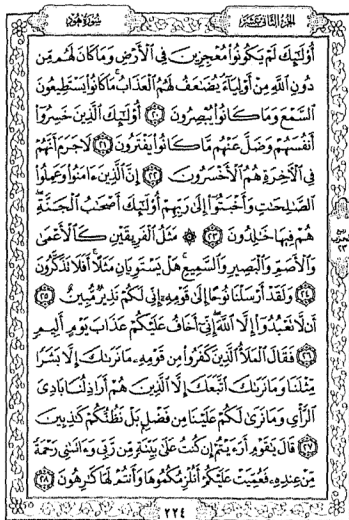 سورة هود
الجزء الثاني عشر
أُو۟لَـٰٓئِكَ لَمْ يَكُونُوا۟ مُعْجِزِينَ فِى ٱلْأَرْضِ وَمَا كَانَ لَهُم مِّن
دُونِ ٱللَّهِ مِنْ أَوْلِيَآءَ يُضَـٰعَفُ لَهُمُ ٱلْعَذَابُ مَا كَانُوا۟ يَسْتَطِيعُونَ
ٱلسَّمْعَ وَمَا كَانُوا۟ يُبْصِرُونَ ٢٠ أُو۟لَـٰٓئِكَ ٱلَّذِينَ خَسِرُوٓا۟
أَنفُسَهُمْ وَضَلَّ عَنْهُم مَّا كَانُوا۟ يَفْتَرُونَ ٢١ لَا جَرَمَ أَنَّهُمْ
فِى ٱلْـَٔاخِرَةِ هُمُ ٱلْأَخْسَرُونَ ٢٢ إِنَّ ٱلَّذِينَ ءَامَنُوا۟ وَعَمِلُوا۟
ٱلصَّـٰلِحَـٰتِ وَأَخْبَتُوٓا۟ إِلَىٰ رَبِّهِمْ أُو۟لَـٰٓئِكَ أَصْحَـٰبُ ٱلْجَنَّةِ
هُمْ فِيهَا خَـٰلِدُونَ ٢٣ ۞ مَثَلُ ٱلْفَرِيقَيْنِ كَٱلْأَعْمَىٰ
وَٱلْأَصَمِّ وَٱلْبَصِيرِ وَٱلسَّمِيعِ هَلْ يَسْتَوِيَانِ مَثَلًا أَفَلَا تَذَكَّرُونَ
٢٤ وَلَقَدْ أَرْسَلْنَا نُوحًا إِلَىٰ قَوْمِهِۦٓ إِنِّى لَكُمْ نَذِيرٌ مُّبِينٌ ٢٥
أَن لَّا تَعْبُدُوٓا۟ إِلَّا ٱللَّهَ إِنِّىٓ أَخَافُ عَلَيْكُمْ عَذَابَ يَوْمٍ أَلِيمٍ
٢٦ فَقَالَ ٱلْمَلَأُ ٱلَّذِينَ كَفَرُوا۟ مِن قَوْمِهِۦ مَا نَرَىٰكَ إِلَّا بَشَرًا
مِّثْلَنَا وَمَا نَرَىٰكَ ٱتَّبَعَكَ إِلَّا ٱلَّذِينَ هُمْ أَرَاذِلُنَا بَادِىَ
ٱلرَّأْىِ وَمَا نَرَىٰ لَكُمْ عَلَيْنَا مِن فَضْلٍۭ بَلْ نَظُنُّكُمْ كَـٰذِبِينَ
٢٧ قَالَ يَـٰقَوْمِ أَرَءَيْتُمْ إِن كُنتُ عَلَىٰ بَيِّنَةٍ مِّن رَّبِّى وَءَاتَىٰنِى رَحْمَةً
مِّنْ عِندِهِۦ فَعُمِّيَتْ عَلَيْكُمْ أَنُلْزِمُكُمُوهَا وَأَنتُمْ لَهَا كَـٰرِهُونَ ٢٨
٢٢٤